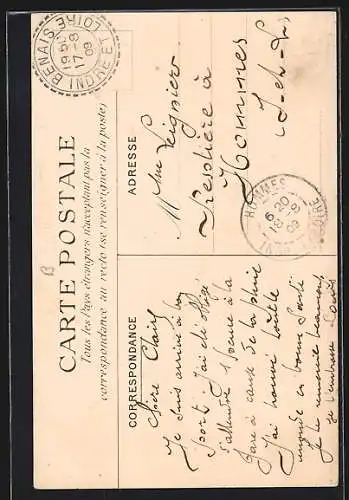 CARTE POSTALE
Tous les Pays étrangers n'acceptent pas la
correspondance au recto (se renseigner à la poste)
CORRESPONDANCE
ADRESSE
BENAIS
19 50
17-8
09
INDRE ET LOIRE
Mme
à
Hommes
I-et-L
HOMMES
6 20
18-8
09
INDRE ET LOIRE
Chère
Je suis arrivé à bon
port. J'ai été obligé
d'attendre 1 heure à la
gare à cause de la pluie
J'ai trouvé
en bonne santé
Je te remercie beaucoup
Je t'embrasse Louis